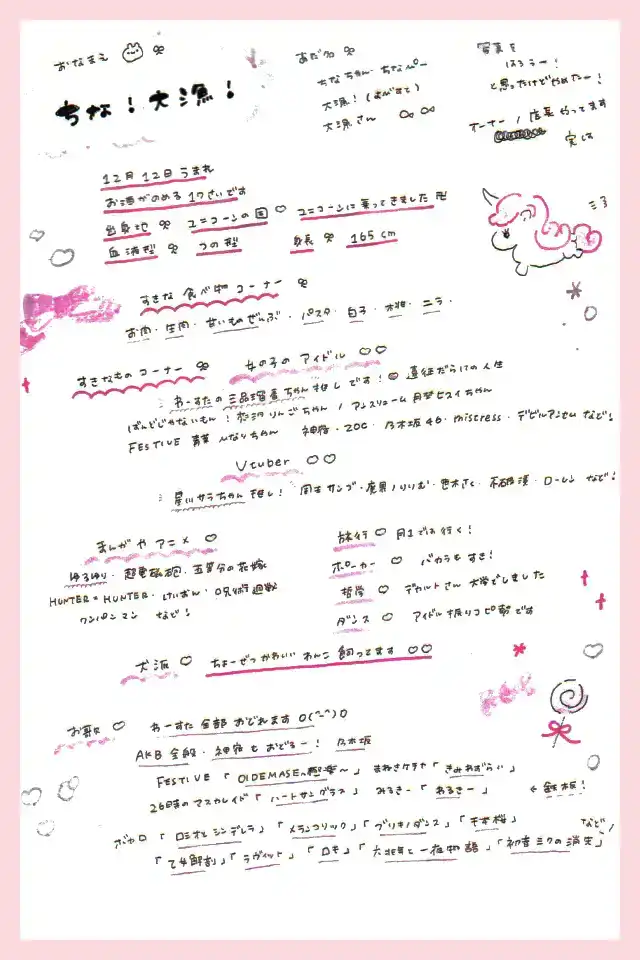 おなまえ
ちな！大漁！
あだ名
ちなちゃん・ちなぱー
大漁！(よびすて)
大漁さん
写真を
はろうー！
と思ったけどやめたー！
オーナー / 店長やってます
実は
12月12日うまれ
お酒がのめる17さいです
出身地 ユニコーンの国♡ ユニコーンに乗ってきました
血液型 つの型 身長 165cm
すきな食べ物コーナー
お肉・生肉・甘いものぜんぶ・パスタ・白子・木綿・ニラ・
すきなものコーナー 女の子のアイドル ♡♡
わーすたの三品瑠香ちゃん推しです！ 直径だらけの人生
ばんどじゃないもん！恋汐りんごちゃん / アンスリューム
FESTIVE 青葉ひなりちゃん 神宿・ZOC・乃木坂46・mistress・デビルアンセム など！
Vtuber ♡♡
星川サラちゃん推し！ 周央サンゴ・魔界ノりりむ・笹木さく・不破湊・ローレン など！
まんがやアニメ ♡
ゆるゆり・超電磁砲・五等分の花嫁
HUNTER×HUNTER・けいおん・呪術廻戦
ワンパンマン など！
旅行 ♡ 月1では行く！
ポーカー ♡ バカラもすき！
哲学 ♡ デカルトさん 大学でしました
ダンス ♡ アイドル振りコピ勢です
犬派 ♡ ちょーぜつかわいいわんこ飼ってます ♡♡
お歌 ♡ わーすた全部おどれます o(^-^)o
AKB全般・神宿もおどるー！ 乃木坂
FESTIVE 「OIDEMASE〜極楽〜」 まねきケチャ「きみわずらい」
26時のマスカレイド「ハートサングラス」 みるきー「あるきー」 ←鉄板！
ボカロ 「ロミオとシンデレラ」「メランコリック」「ブリキノダンス」「千本桜」 など！
「乙女解剖」「ラヴィット」「ロキ」「六兆年と一夜物語」「初音ミクの消失」